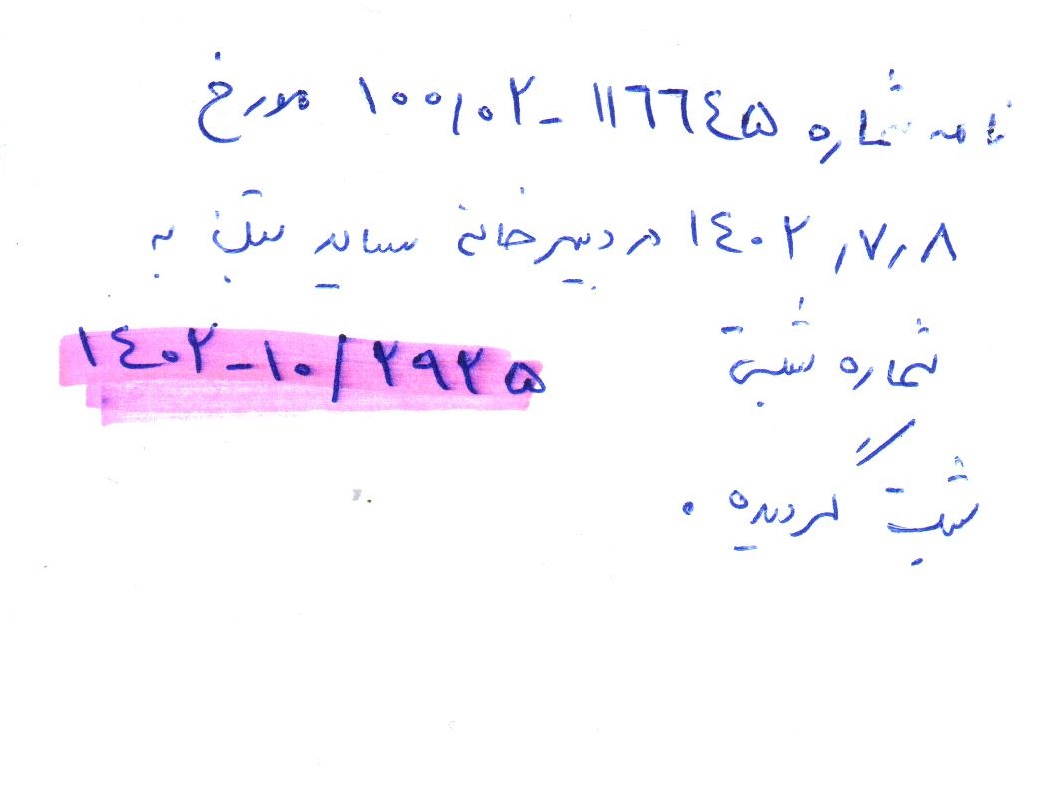 نامه شماره ۱۱۶۶۴۵ - ۱۰۰/۰۲ مورخ
۱۴۰۲/۷/۸ در دبیرخانه ساید به
شماره ثبت ۱۴۰۲-۱۰/۲۹۲۵
ثبت گردیده .